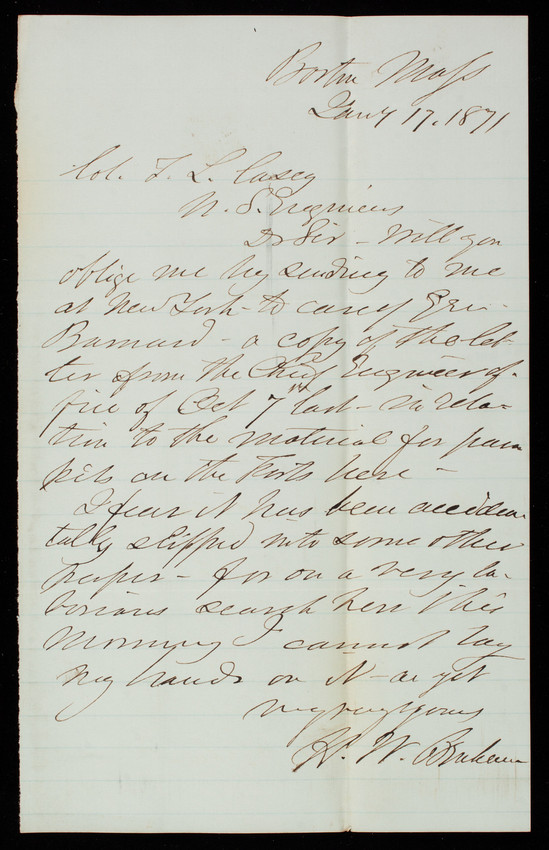 Boston Mass
Jany 17, 1871
Col. T. L. Casey
U. S. Engineers
Dr Sir - Will you
oblige me by sending to me
at New York - to care of Gen.
Barnard - a copy of the let-
ter from the Chief Engineer of-
fice of Oct 7th last - in rela-
tion to the material for para
pets on the Forts here -
I fear it has been acciden
tally slipped into some other
papers - for on a very la-
borious search here this
morning I cannot lay
my hands on it - as yet
very truly yours
H. W. Benham